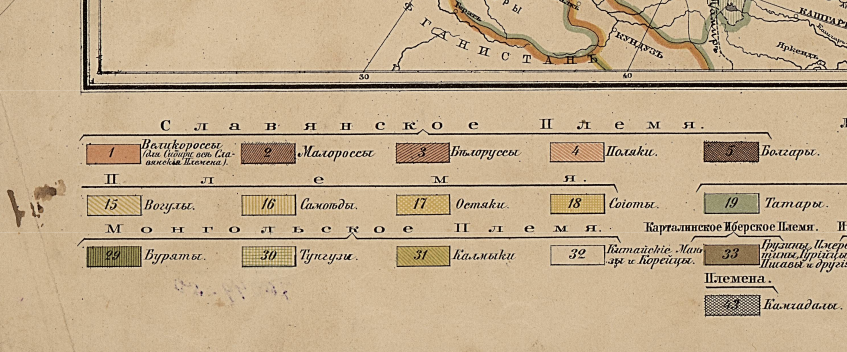 Гератъ
РЫ
ГАНИСТАНЪ
КУНДУЗЪ
КАШГАР
Яркендъ
30
40
Славянское Племя.
1 Великороссы
(для Сибири всѣ Сла-
вянскія Племена).
2 Малороссы
3 Бѣлоруссы
4 Поляки.
5 Болгары.
Племя.
15 Вогулы.
16 Самоѣды.
17 Остяки.
18 Соіоты.
19 Татары.
Монгольское Племя.
Карталинское Иберское Племя.
29 Буряты.
30 Тунгузы.
31 Калмыки
32 Китайскіе Мань-
зы и Корейцы.
33 Грузины, Имере
тины, Гурійцы
Пшавы и другія
Племена.
43 Камчадалы.